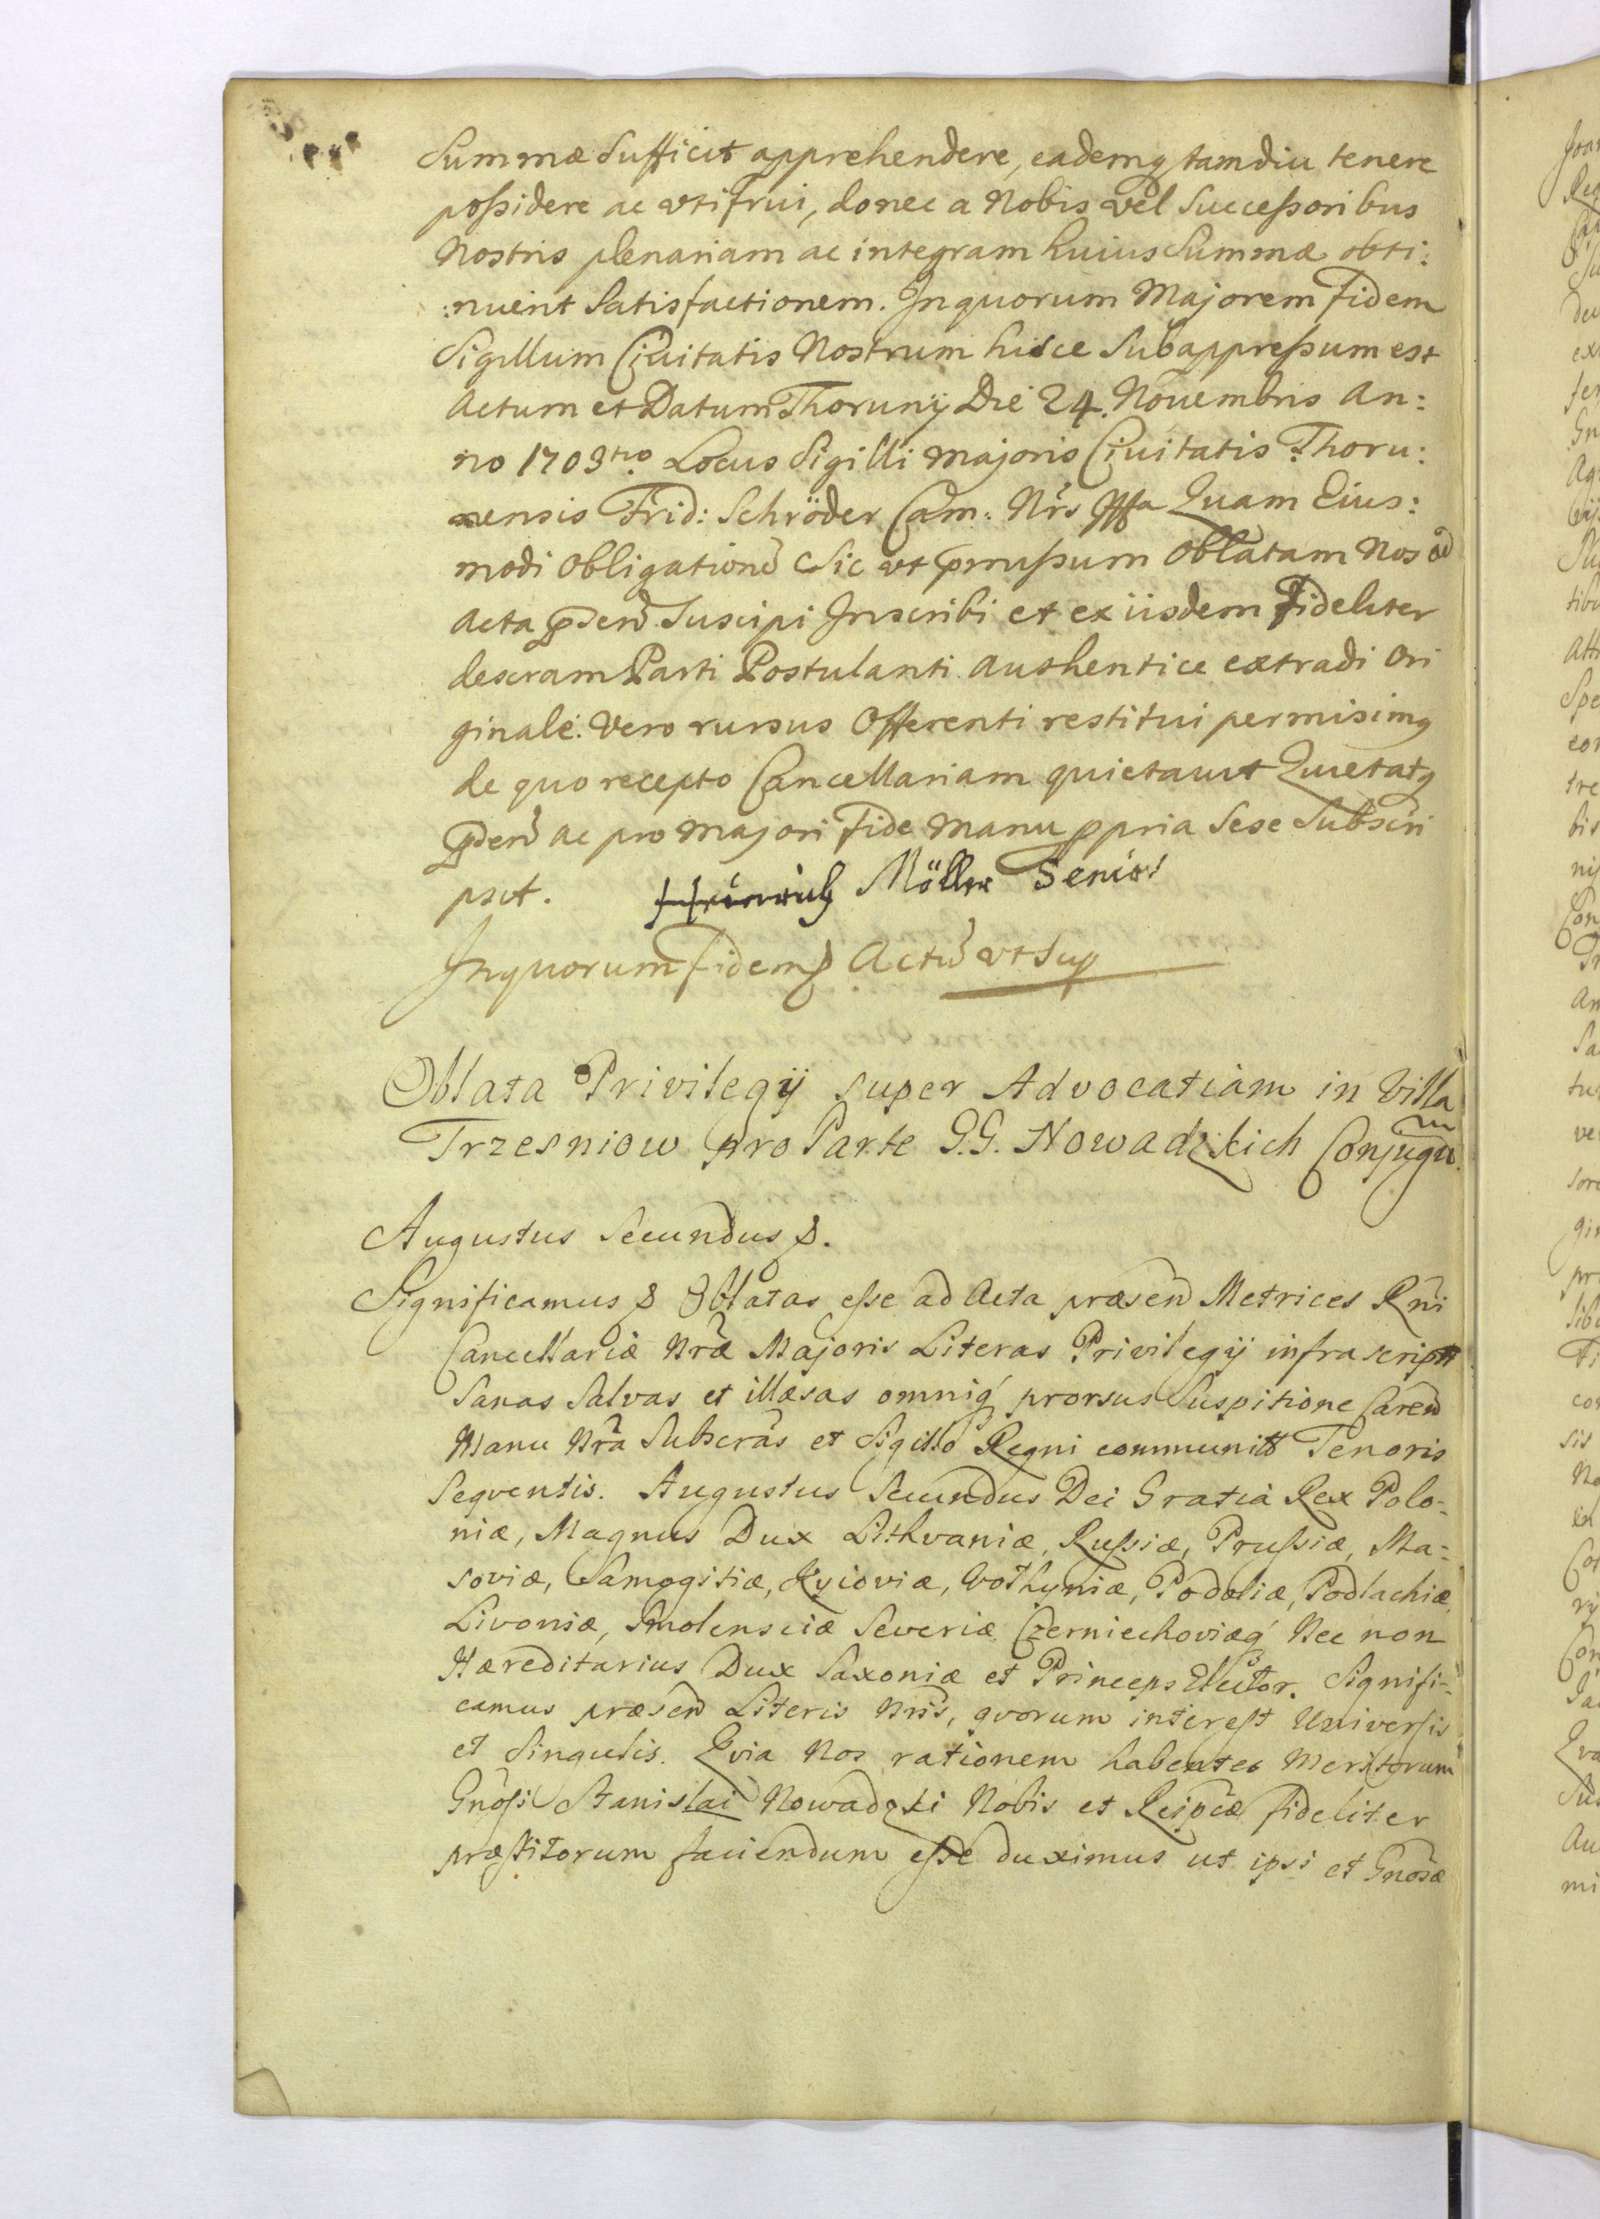 Summæ Sufficit apprehendere, eademq tamdiu tenere
possidere ac vtifrui, donec a Nobis vel Successoribus
Nostris plenariam ac integram huius Summæ obti:
:nuerit Satisfactionem. In quorum Majorem Fidem
Sigillum Ciuitatis Nostrum hisce Subappressum est
Actum et Datum Thorunij Die 24. Nouembris An:
no 1703tio Locus Sigilli Majoris Ciuitatis Thoru:
nensis Frid: Schröder Cam: Nrs Quam Eius:
modi Obligationē Sic vt Oblatam Nos ad
Acta Suscipi Inscribi et ex iisdem Fideliter
descram Parti Postulanti authentice extradi Ori
ginale. Vero rursus Offerenti restitui permisimq
de quo recepto Cancellariam quietauit Quietatq
ac pro Majori Fide Manu ppria Sese Subscri
psit. Heinrich Möller Senior
In quorum Fidem Actū vt Sup
Oblata Privilegij super Advocatiam in Villa
Trzesniow pro Parte G.G. Nowadzkich Conjugu
Augustus Secundus &.
Significamus & Oblatas esse ad Acta præsen Metrices Rni
Cancellariæ Nræ Majoris Literas Privilegij infrascript
Sanas Salvas et illæsas omniq prorsus Suspitione Caren
Manu Nra Subscras et Sigillo Regni communit Tenoris
Seqventis. Augustus Secundus Dei Gratia Rex Polo-
niæ, Magnus Dux Lithvaniæ, Russiæ, Prussiæ, Ma-
soviæ, Samogitiæ, Kyioviæ, Volhyniæ, Podoliæ, Podlachiæ,
Livoniæ, Smolensciæ Severiæ Czerniechoviæq Nec non
Hæreditarius Dux Saxoniæ et Princeps Elector. Signifi-
camus præsen Literis Nris, qvorum interest Universis
et Singulis. Qvia Nos rationem habentes Meritorum
Gnosi Stanislai Nowadzki Nobis et Reipcæ fideliter
præstitorum faciendum esse duximus ut ipsi et Gnosæ